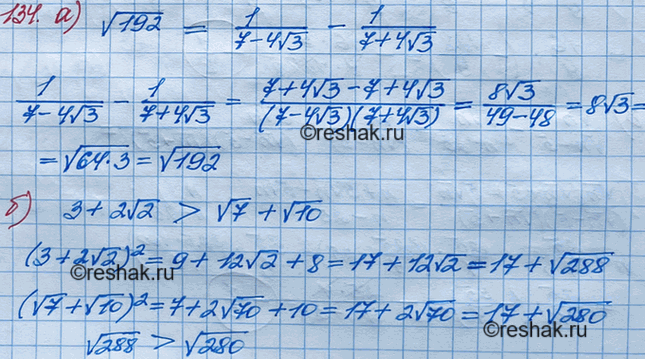 134. а) √192 = 1/(7-4√3) - 1/(7+4√3)
1/(7-4√3) - 1/(7+4√3) = (7+4√3-7+4√3)/((7-4√3)(7+4√3)) = 8√3/(49-48) = 8√3 =
©reshak.ru
= √64·3 = √192
б) 3+2√2 > √7 + √10
(3+2√2)² = 9+12√2+8 = 17+12√2 = 17+√288
©reshak.ru
(√7+√10)² = 7+2√70+10 = 17+2√70 = 17+√280
√288 > √280
©reshak.ru